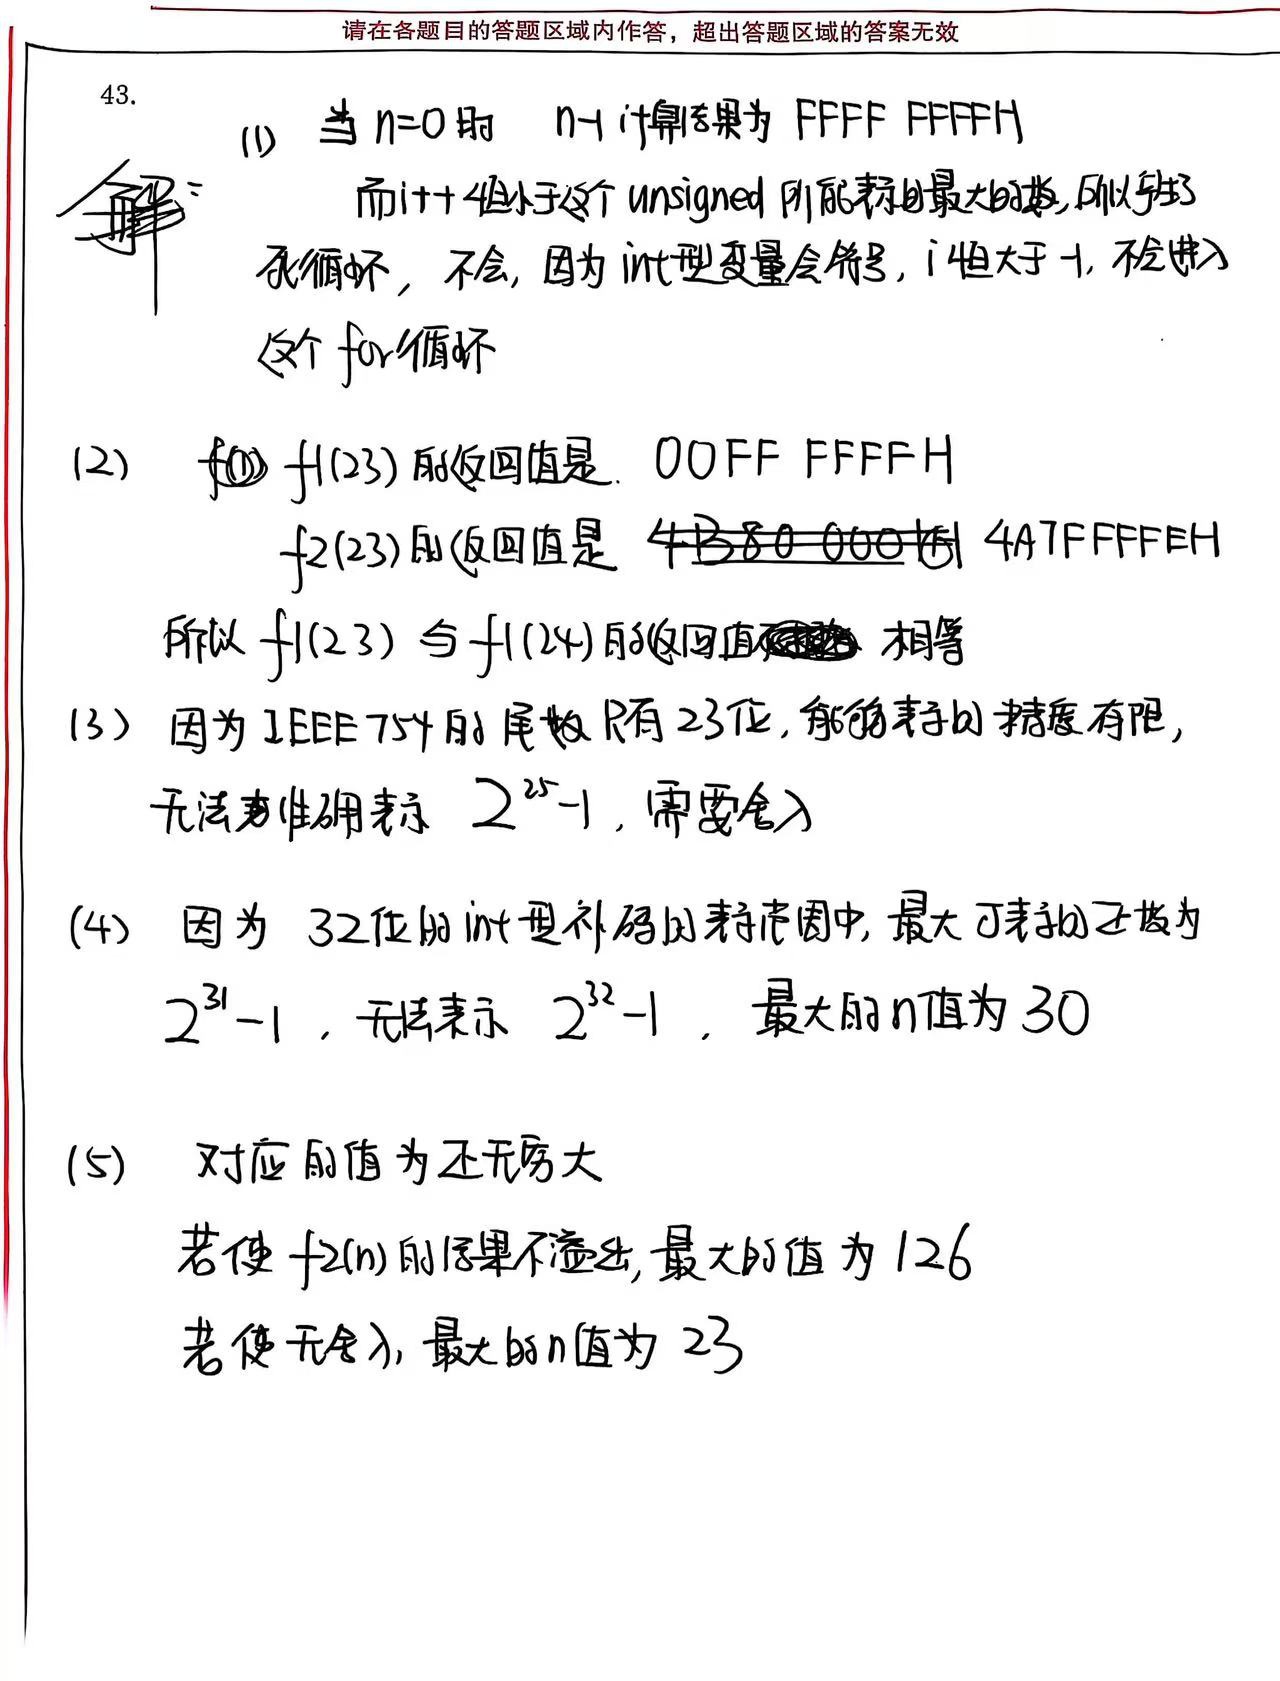 请在各题目的答题区域内作答，超出答题区域的答案无效
43.
(1) 当 n=0 时 n-1 计算结果为 FFFF FFFFH
解：
而 i++ 恒小于这个 unsigned 所能表的最大的数，所以导致了
死循环，不会，因为 int 型变量会符号，i 恒大于 -1，不会进入
这个 for 循环
(2) f1(23) 的返回值是 00FF FFFFH
f2(23) 的返回值是 4A7FFFFEH
所以 f1(23) 与 f1(24) 的返回值 相等
(3) 因为 IEEE 754 的尾数只有 23位，能够表示的精度有限，
无法准确表示 2^25-1，需要舍入
(4) 因为 32位的 int 型补码的表示范围中，最大可表示的正数为
2^31-1，无法表示 2^32-1，最大的n值为 30
(5) 对应的值为正无穷大
若使 f2(n) 的结果不溢出，最大的值为 126
若使无舍入，最大的n值为 23